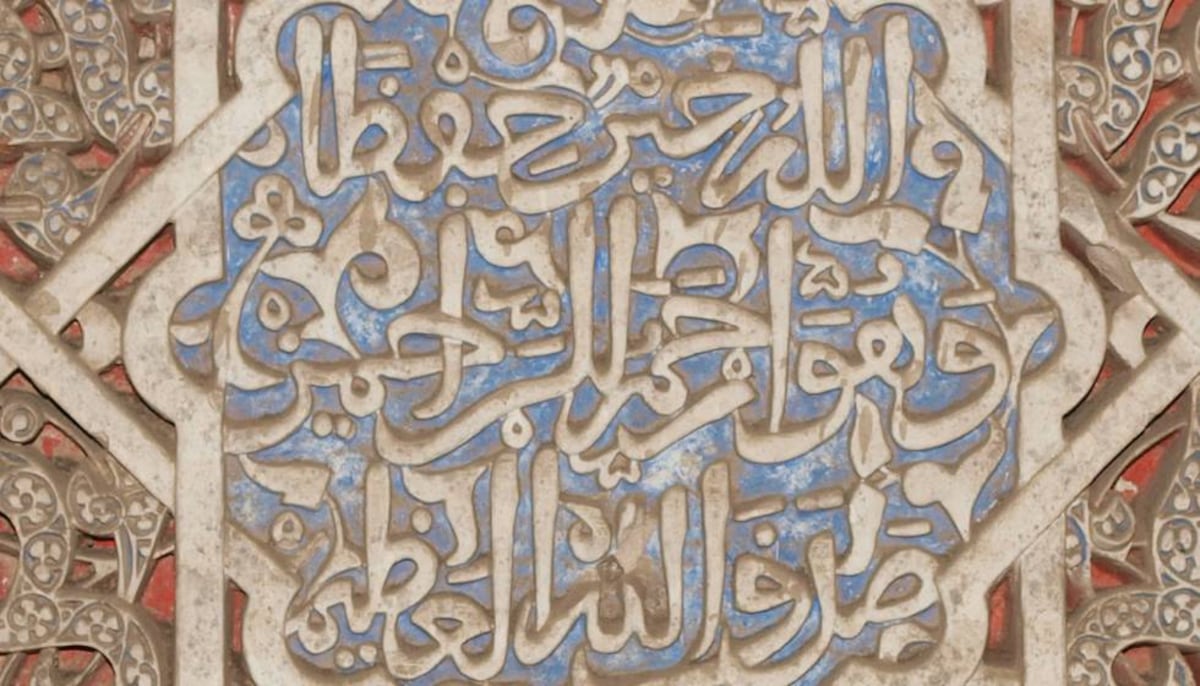 الله خير حفظا
وهو ارحم الرحمين
صدق الله العظيم